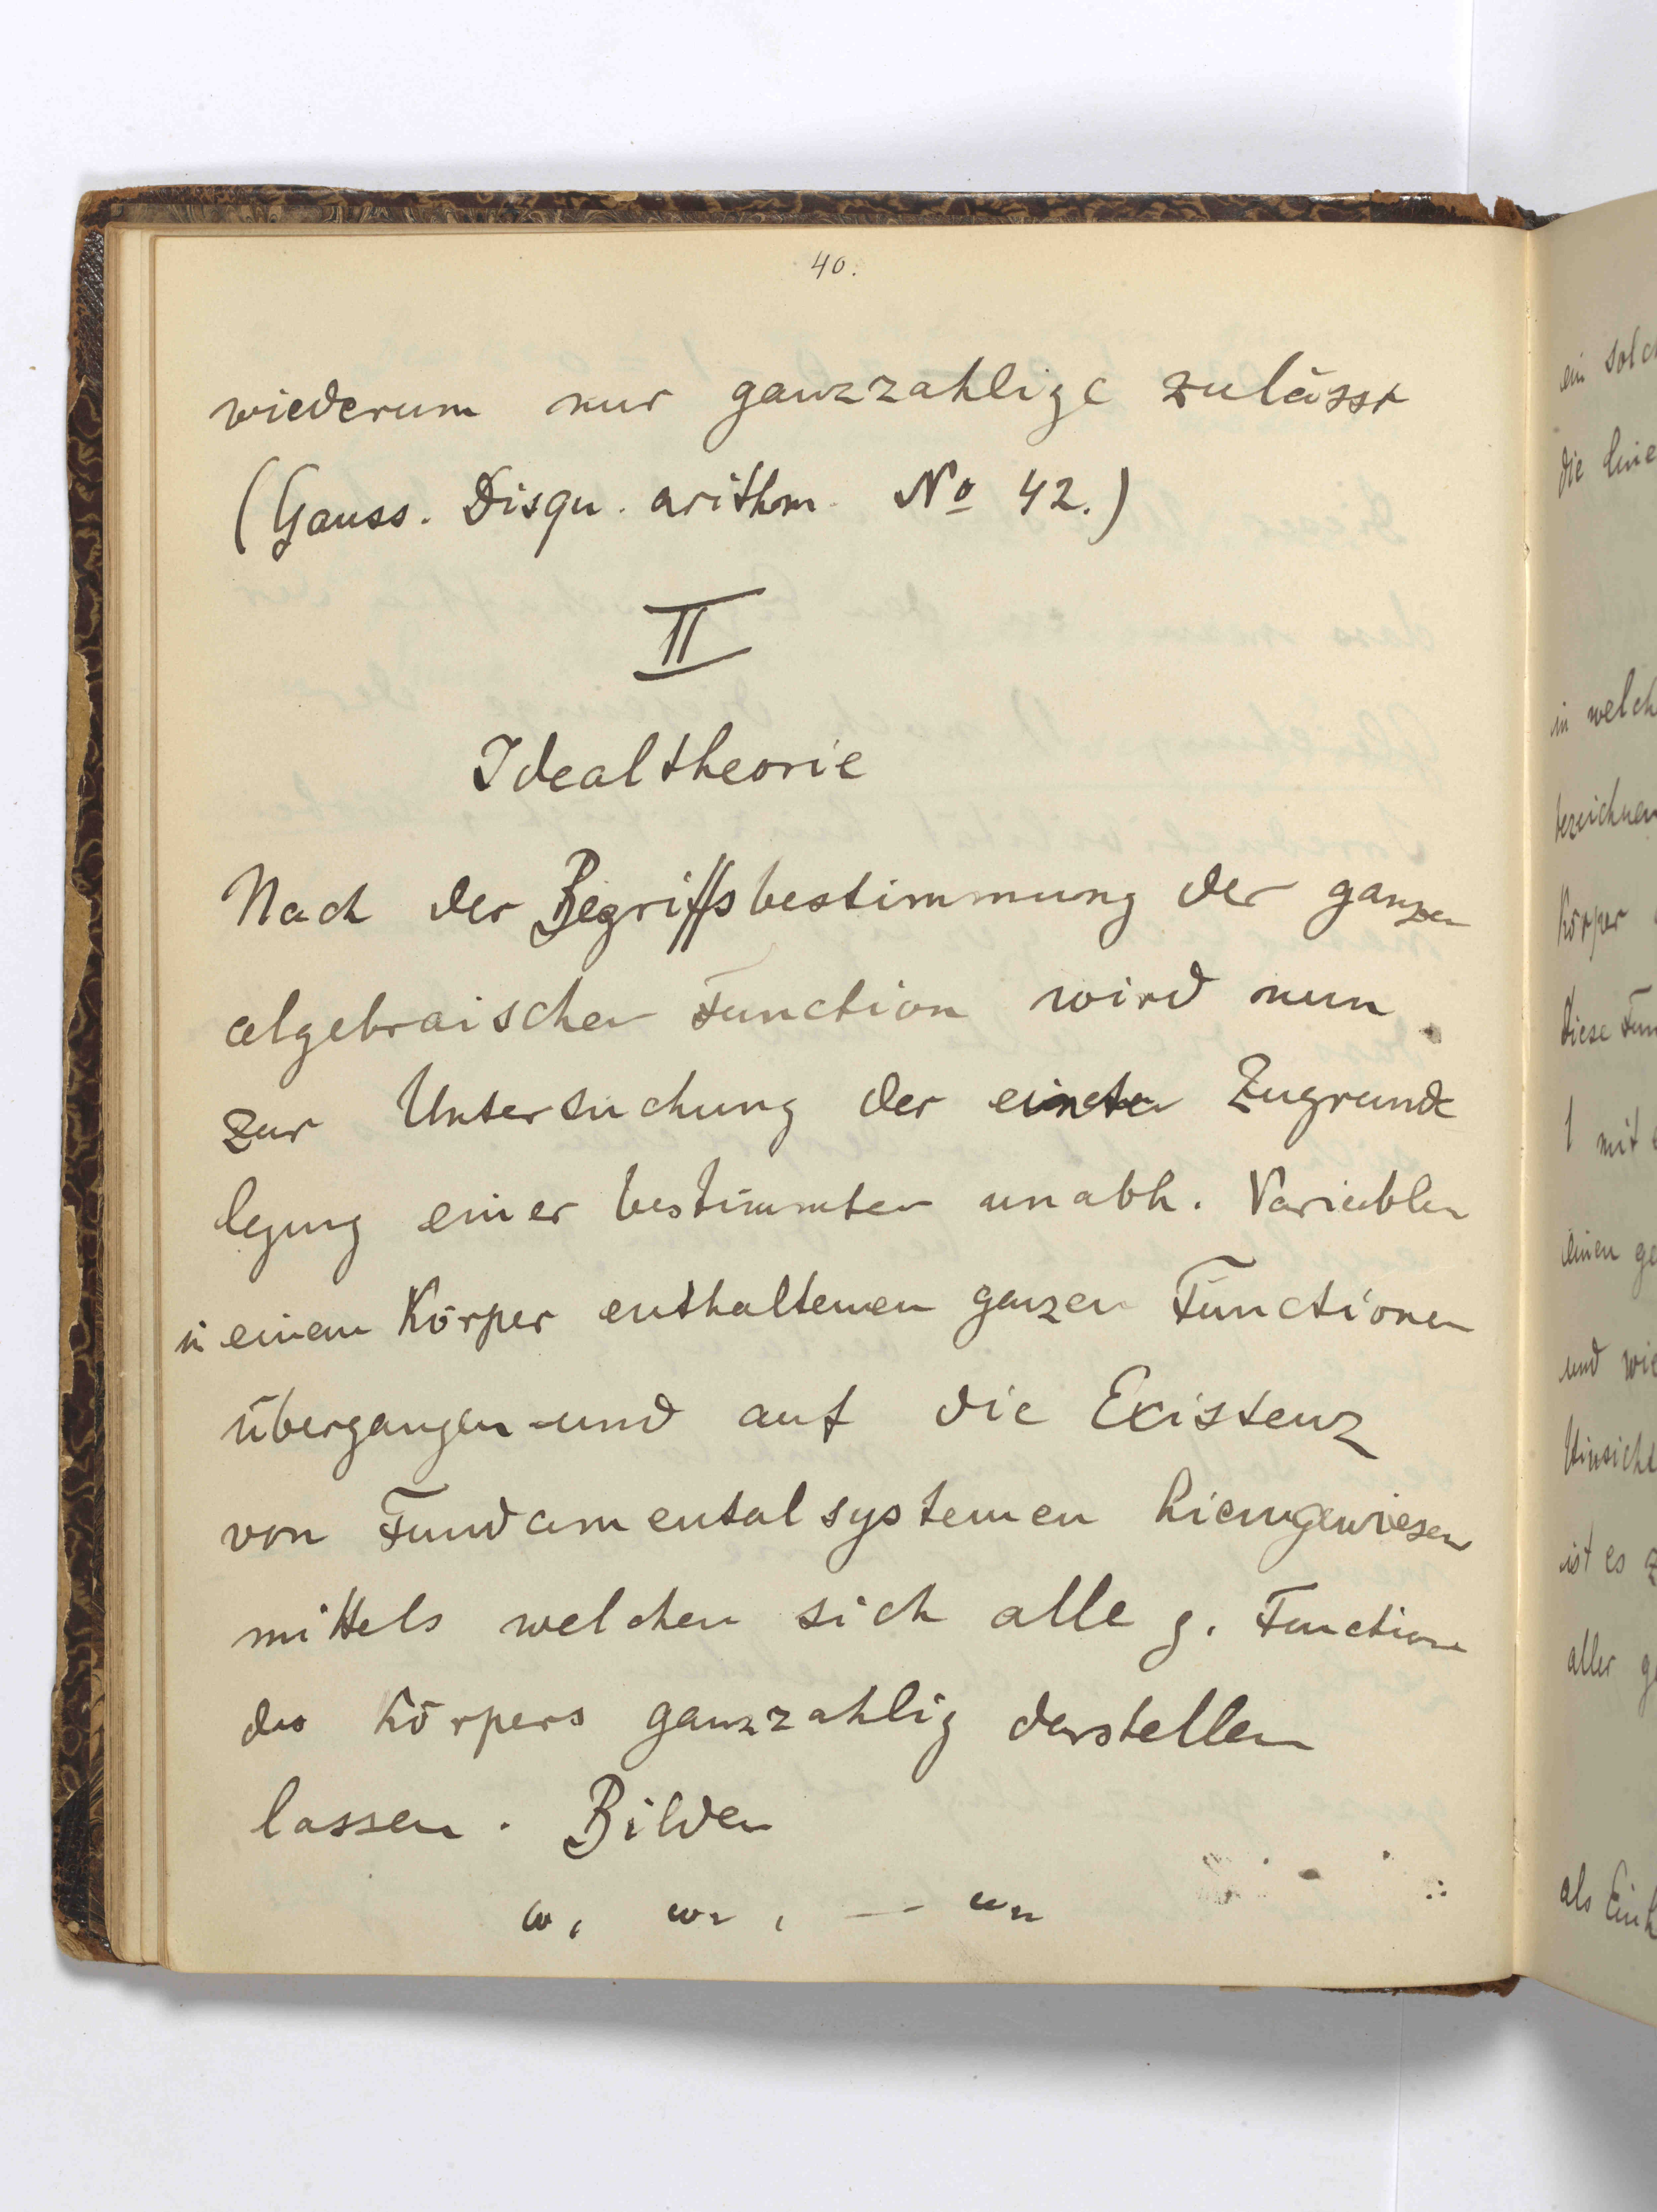 40.
wiederum nur ganzzahlige zulässt
(Gauss. Disqu. arithm. No 42.)
II
Idealtheorie
Nach der Begriffsbestimmung der ganzen
algebraischen Function wird nun
zur Untersuchung der Zugrunde
legung einer bestimmten unabh. Variablen
in einem Körper enthaltenen ganzen Functionen
übergangen und auf die Existenz
von Fundamentalsystemen
mittels welchen sich alle g. Function
des Körpers ganzzahlig darstellen
lassen. Bilden
ω, ω₂, — ωn
ein solch
die line
in welch
bezeichnen
Körper
diese Fun
1 mit
einen ge
und wie
Hinsicht
ist es z
aller g
als Einh